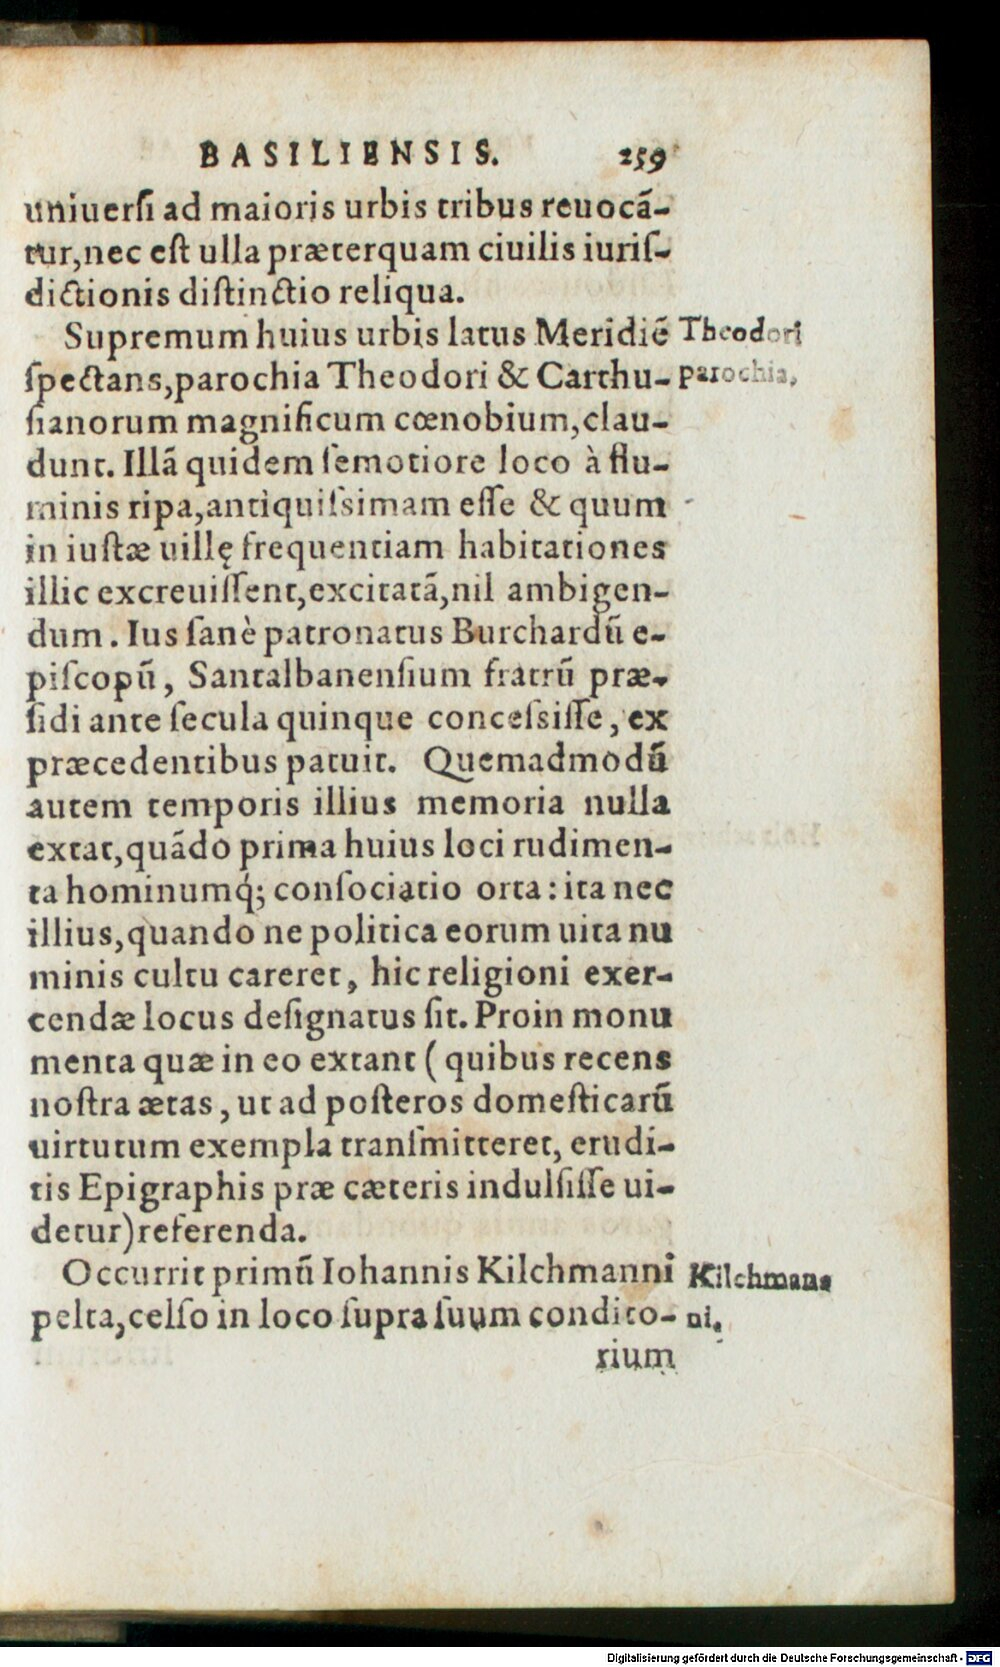 BASILIENSIS. 259
uniuerſi ad maioris urbis tribus reuocã-
tur, nec eſt ulla præterquam ciuilis iuriſ-
dictionis diſtinctio reliqua.
Supremum huius urbis latus Meridiẽ Theodori
ſpectans, parochia Theodori & Carthu- parochia.
ſianorum magnificum cœnobium, clau-
dunt. Illã quidem ſemotiore loco à flu-
minis ripa, antiquiſsimam eſſe & quum
in iuſtæ uillę frequentiam habitationes
illic excreuiſſent, excitatã, nil ambigen-
dum. Ius ſanè patronatus Burchardũ e-
piſcopũ, Santalbanenſium fratrũ præ-
ſidi ante ſecula quinque conceſsiſſe, ex
præcedentibus patuit. Quemadmodũ
autem temporis illius memoria nulla
extat, quãdo prima huius loci rudimen-
ta hominumq́; conſociatio orta: ita nec
illius, quando ne politica eorum uita nu
minis cultu careret, hic religioni exer-
cendæ locus deſignatus ſit. Proin monu
menta quæ in eo extant (quibus recens
noſtra ætas, ut ad poſteros domeſticarũ
uirtutum exempla tranſmitteret, erudi-
tis Epigraphis præ cæteris indulſiſſe ui-
detur) referenda.
Occurrit primũ Iohannis Kilchmanni Kilchmans
pelta, celſo in loco ſupra ſuum condito- ni.
rium
Digitalisierung gefördert durch die Deutsche Forschungsgemeinschaft - DFG